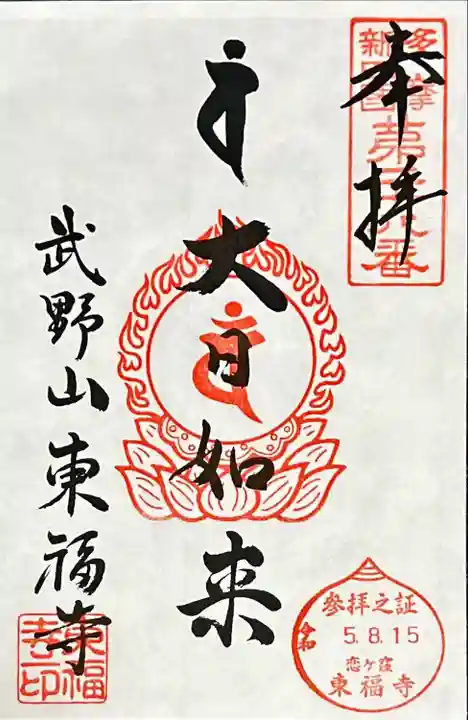 奉拝
多摩
新四国
番
大日如来
武野山東福寺
東福
寺
法印
參拝之証
令和
5.8.15
恋ヶ窪
東福寺